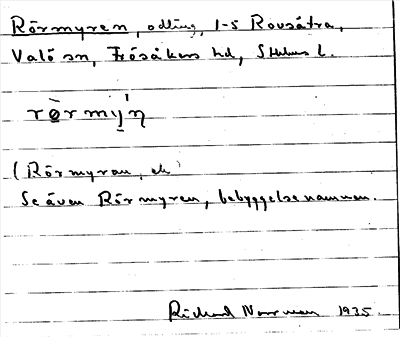 Rörmyren, odling, 1-5 Rovsätra,
Valö sn, Frösåkers hd, Sthlms l.
rö̀rmy̱'n
(Rörmyran, ek)
Se även Rörmyren, bebyggelsenamnen.
Richard Norrman 1935.